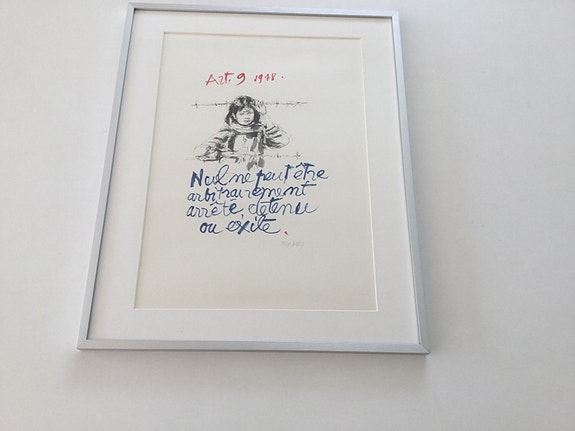 Art. 9 1948.
Nul ne peut être
arbitrairement
arrêté, détenu
ou exilé.